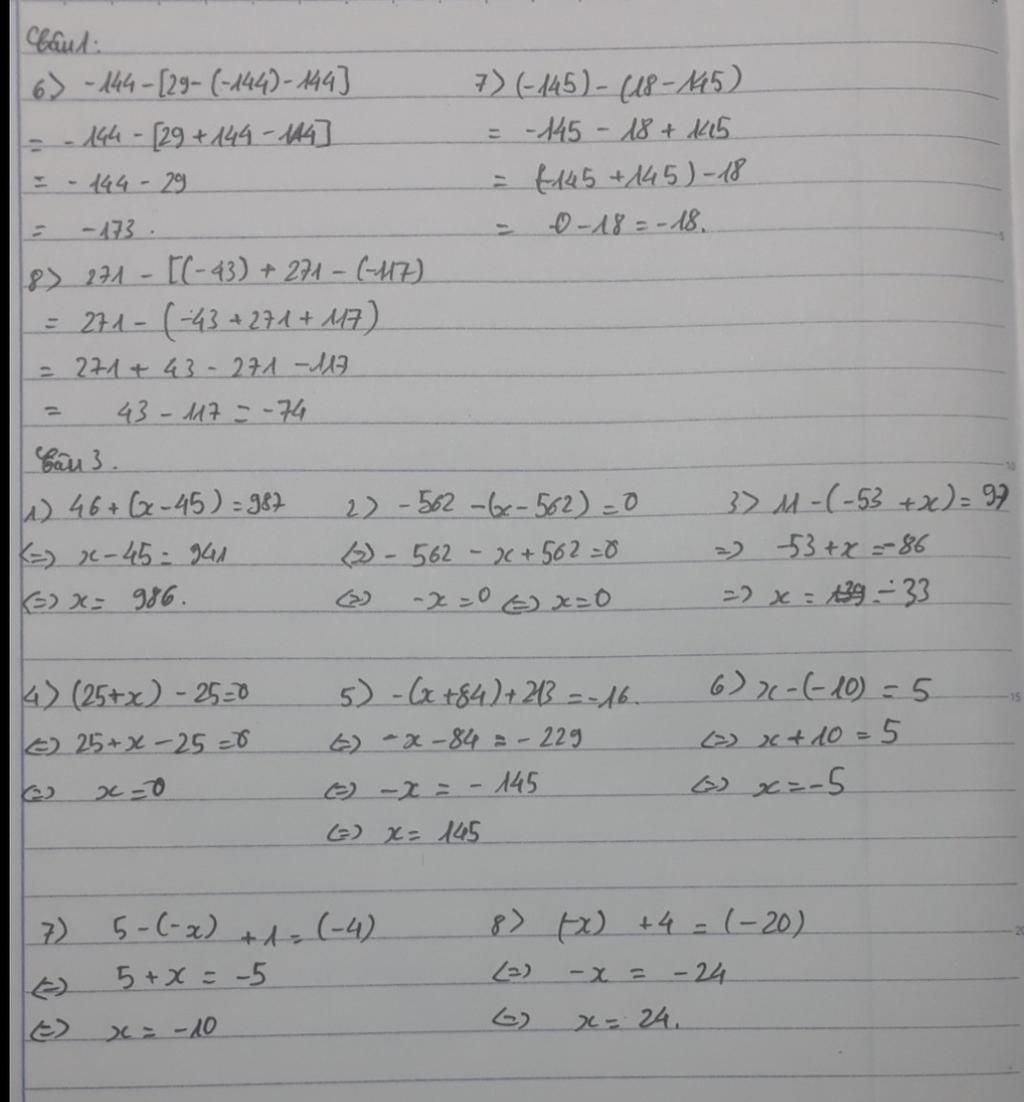 Câu 1:
6) -144 - [29 - (-144) - 144]
= -144 - [29 + 144 - 144]
= -144 - 29
= -173.
7) (-145) - (18 - 145)
= -145 - 18 + 145
= (-145 + 145) - 18
= 0 - 18 = -18.
8) 271 - [(-43) + 271 - (-117)
= 271 - (-43 + 271 + 117)
= 271 + 43 - 271 - 117
= 43 - 117 = -74
Câu 3.
1) 46 + (x - 45) = 987
<=> x - 45 = 941
<=> x = 986.
2) -562 - (x - 562) = 0
<=> -562 - x + 562 = 0
<=> -x = 0 <=> x = 0
3) 11 - (-53 + x) = 97
=> -53 + x = -86
=> x = -33
4) (25 + x) - 25 = 0
<=> 25 + x - 25 = 0
<=> x = 0
5) -(x + 84) + 213 = -16.
<=> -x - 84 = -229
<=> -x = -145
<=> x = 145
6) x - (-10) = 5
<=> x + 10 = 5
<=> x = -5
7) 5 - (-x) + 1 = (-4)
<=> 5 + x = -5
<=> x = -10
8) (-x) + 4 = (-20)
<=> -x = -24
<=> x = 24.